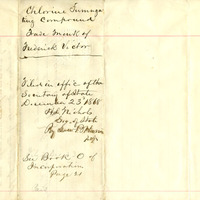 Chlorine Fumaga
ting Compound
Trade Mark of
Frederick Victor
Filed in office of the
Secretary of State
December 23 1868
H. L. Nichols
Sec. of State
By
Dep
See Book O of
Incorporation
Page 21